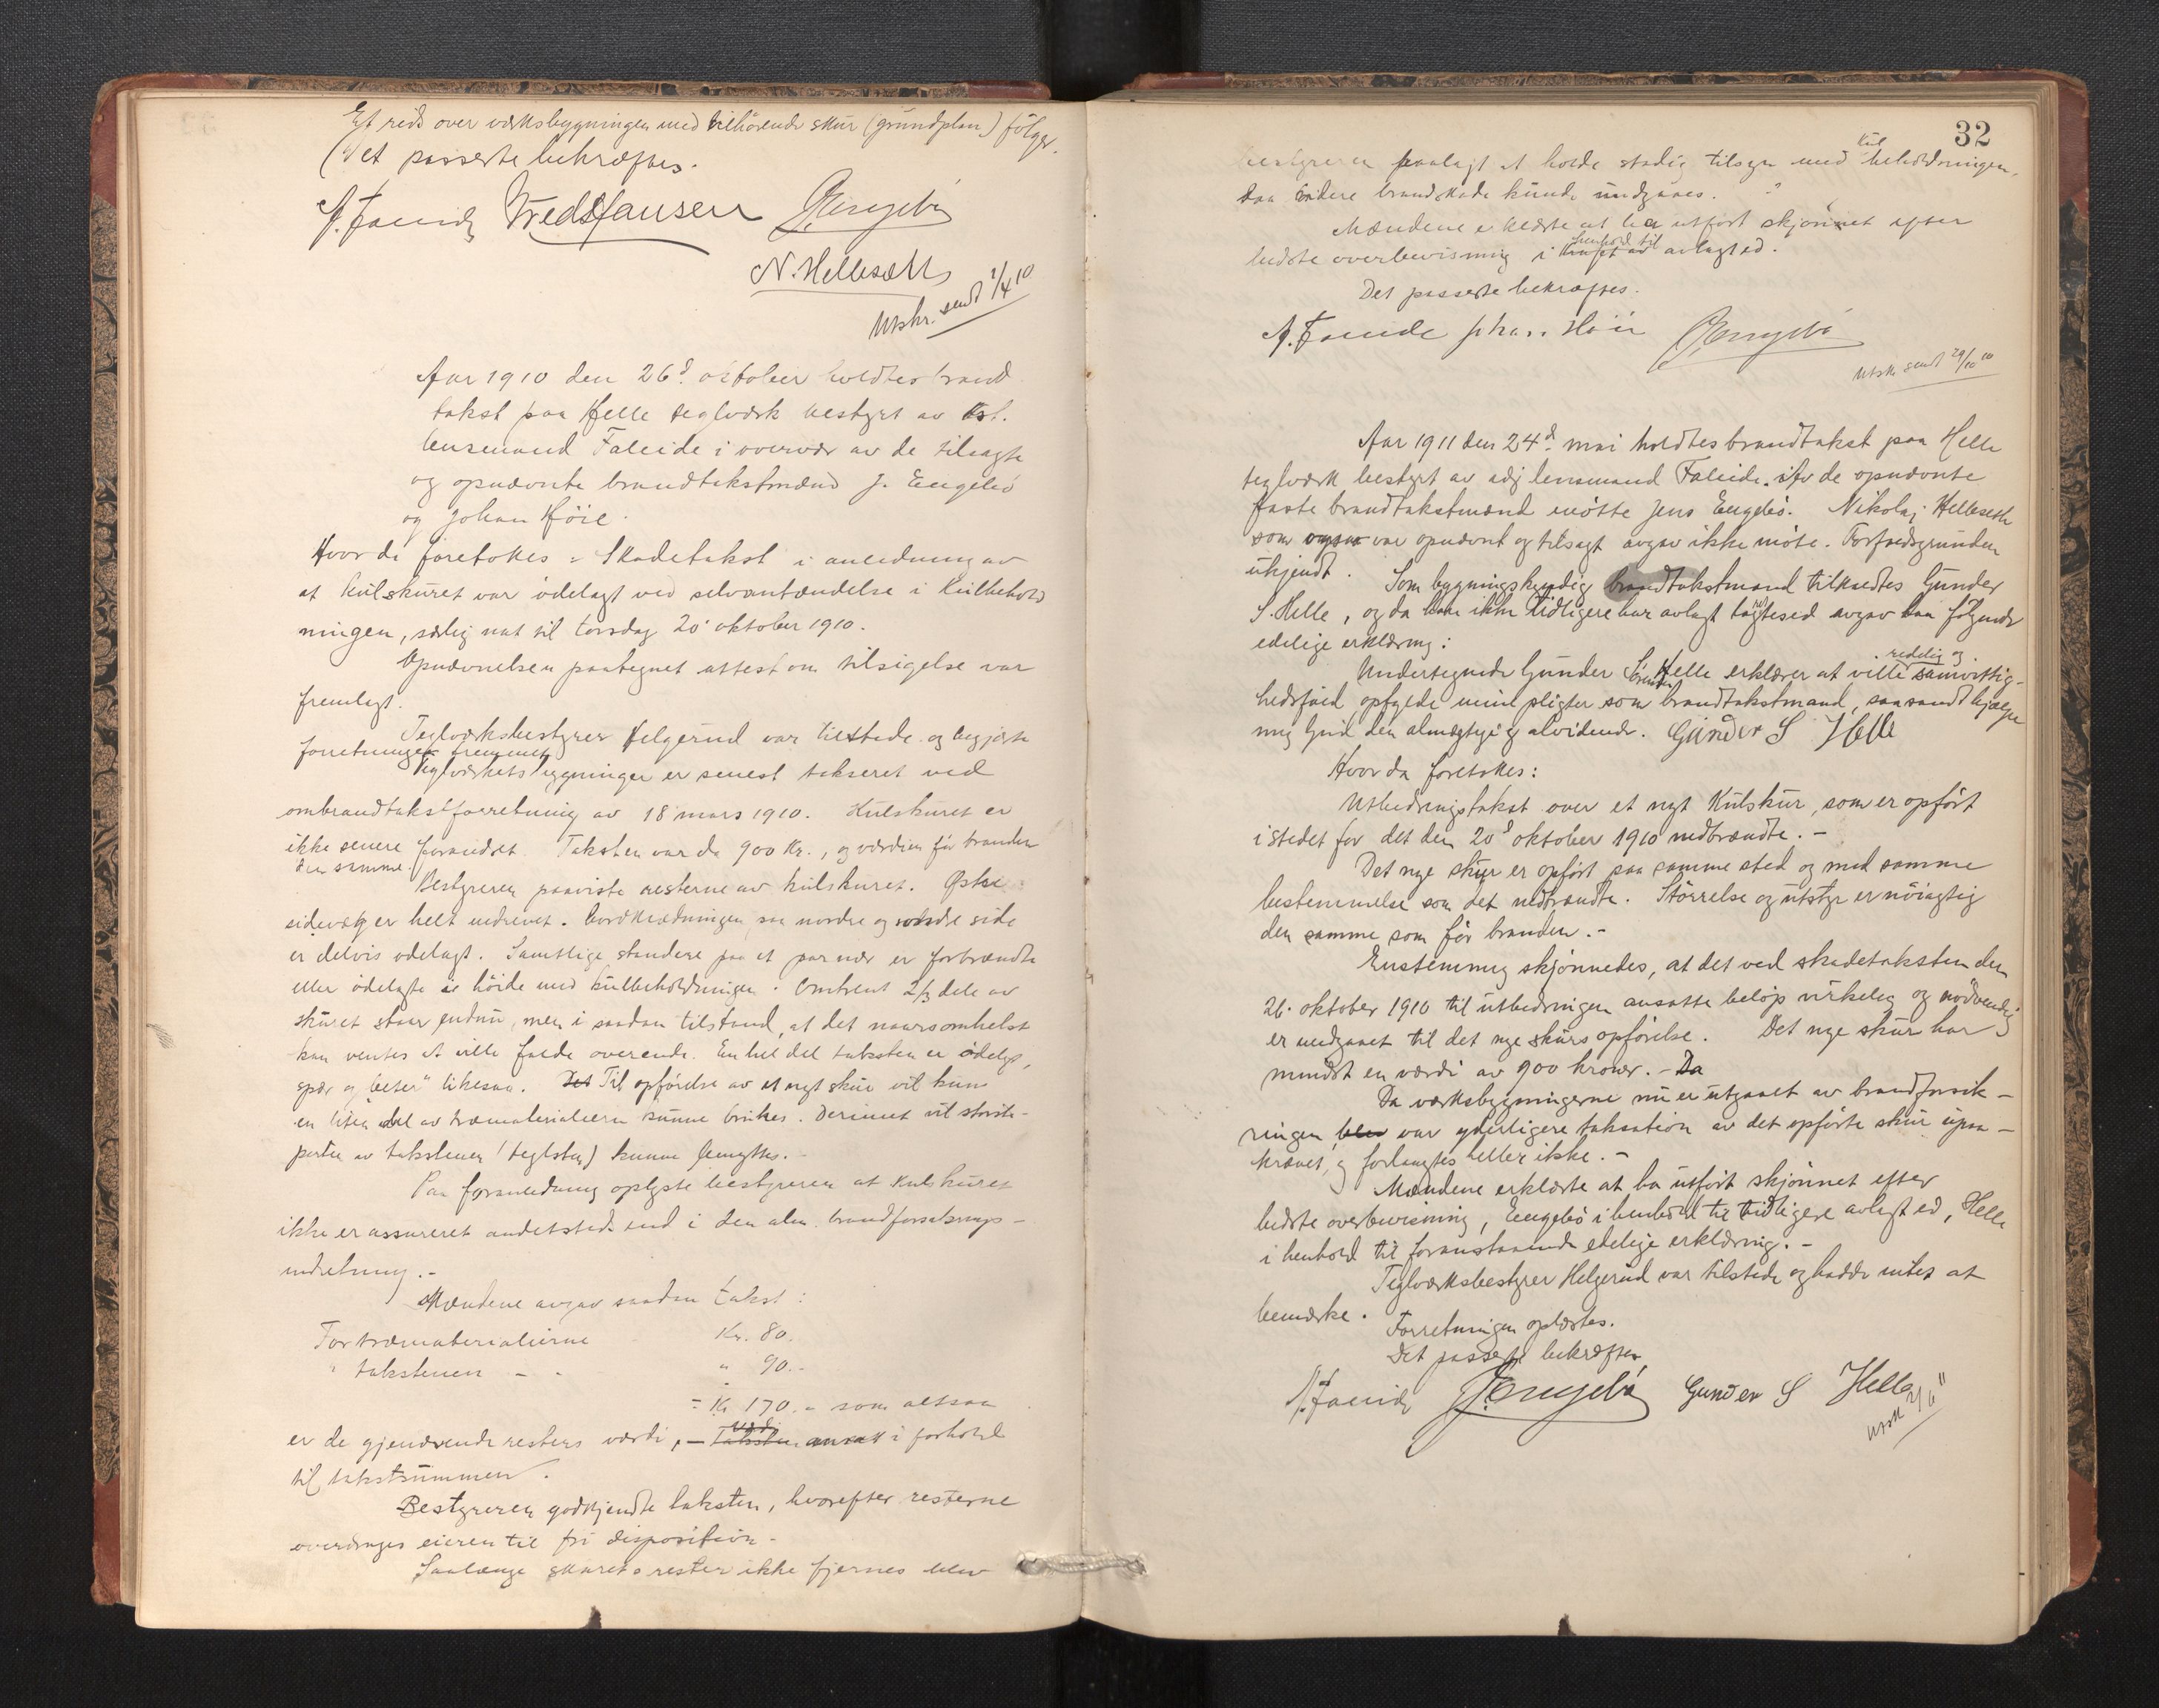 Et rids over verksbygningen med tilhörende skur (grundplan) følger.
Det passerte bekræftes.
A. Faleide Fredr Hansen J. Engebö
N. Hellesæth
Utskr. sendt 1/4 10
Aar 1910 den 26d. oktober holdtes brand
takst paa Helle teglverk bestyrt av kst.
lensmand Faleide i overvær av de tilsagte
og opnævnte brandtakstmænd J. Engebö
og Johan Höie.
Hvor da foretokes: Skadetakst i anledning av
at kulskuret var ödelagt ved selvantændelse i kulbehold
ningen, særlig nat til torsdag 20' oktober 1910.
Opnævnelsen paategnet attest om tilsigelse var
fremlagt.
Teglverksbestyrer Helgerud var tilstede og begjærte
forretningen fremmet.
Teglverkets bygninger er senest takseret ved
ombrandtakstforretning av 18 mars 1910. Kulskuret er
ikke senere forandret. Taksten var da 900 Kr., og værdien før branden
den samme.
Bestyreren paaviste resterne av kulskuret. Østre
sidevæg er helt nedrevet. Bordklædningen paa nordre og søndre side
er delvis ødelagt. Samtlige standere paa et par nær er forbrændte
eller ödelagte i höide med kulbeholdningen. Omtrent 2/3 dele av
skuret staar endnu, men i saadan tilstand, at det naarsomhelst
kan ventes at ville falde overende. En hel del taksten er ödelagt,
spær og "leter" likesaa. Det Til opförelse av et nyt skur vil kun
en liten del av træmaterialierne kunne brukes. Derimot vil störste-
parten av takstenen (teglsten) kunne benyttes.-
Paa foranledning oplyste bestyreren at kulskuret
ikke er assureret andetsteds end i den alm. brandforsikrings-
indretning.-
Mændene avgav saadan takst:
For træmaterialierne Kr. 80.
" takstenen - - " 90.-
= Kr 170.- som altsaa
er de gjenværende resters værdi, - Taksten ansat i forhold
til takstsummen.
Bestyreren godkjendte taksten, hvorefter resterne
overdroges eieren til fri disposition.-
Saalænge skurets rester ikke fjernes blev
32
bestyreren paalagt at holde stadig tilsyn med kul beholdningen,
saa videre brandskade kunde undgaaes.
Mændene erklærte at ha utfört skjönnet efter
bedste overbevisning i henhold til avlagt ed.
Det passerte bekræftes.
A. Faleide Johan Höie J. Engebö
Utskr. sendt 29/10 10
Aar 1911 den 24d. mai holdtes brandtakst paa Helle
teglverk bestyrt av adj lensmand Faleide. Av de opnævnte
faste brandtakstmænd mötte Jens Engebö. Nikolai Hellesæth
som ogsaa var opnævnt og tilsagt avgav ikke möte. Forfaldsgrunden
ukjendt. Som bygningskyndig brandtakstmand tilkaldtes Gunder
S. Helle, og da han ikke tidligere har avlagt lagrettesed avgav han følgende
edelige erklæring:
Undertegnede Gunder S. Helle erklærer at ville redelig og samvittig-
hedsfuld opfylde mine pligter som brandtakstmand, saa sandt hjælpe
mig Gud den almægtige og alvidende. Gunder S Helle
Hvor da foretokes:
Utbedringstakst over et nyt Kulskur, som er opfört
istedet for det den 20d oktober 1910 nedbrændte.-
Det nye skur er opfört paa samme sted og med samme
bestemmelse som det nedbrændte. Störrelse og utstyr er nöiagtig
den samme som för branden.-
Enstemmig skjönnedes, at det ved skadetaksten den
26. oktober 1910 til utbedringen ansatte belöp virkelig og nödvendig
er medgaaet til det nye skurs opförelse. Det nye skur har
mindst en værdi av 900 kroner.- Da
Da verksbygningerne nu er utgaaet av brandforsik-
ringen blev var yderligere taksation av det opförte skur upaa-
krævet, og forlangtes heller ikke.-
Mændene erklærte at ha utfört skjönnet efter
bedste overbevisning, Engebö i henhold til tidligere avlagt ed, Helle
i henhold til foranstaaende edelige erklæring.-
Teglverksbestyrer Helgerud var tilstede og hadde intet at
bemerke.
Forretningen oplæstes.
Det passerte bekræftes
A. Faleide J. Engebö Gunder S Helle
Utsk 2/6 11